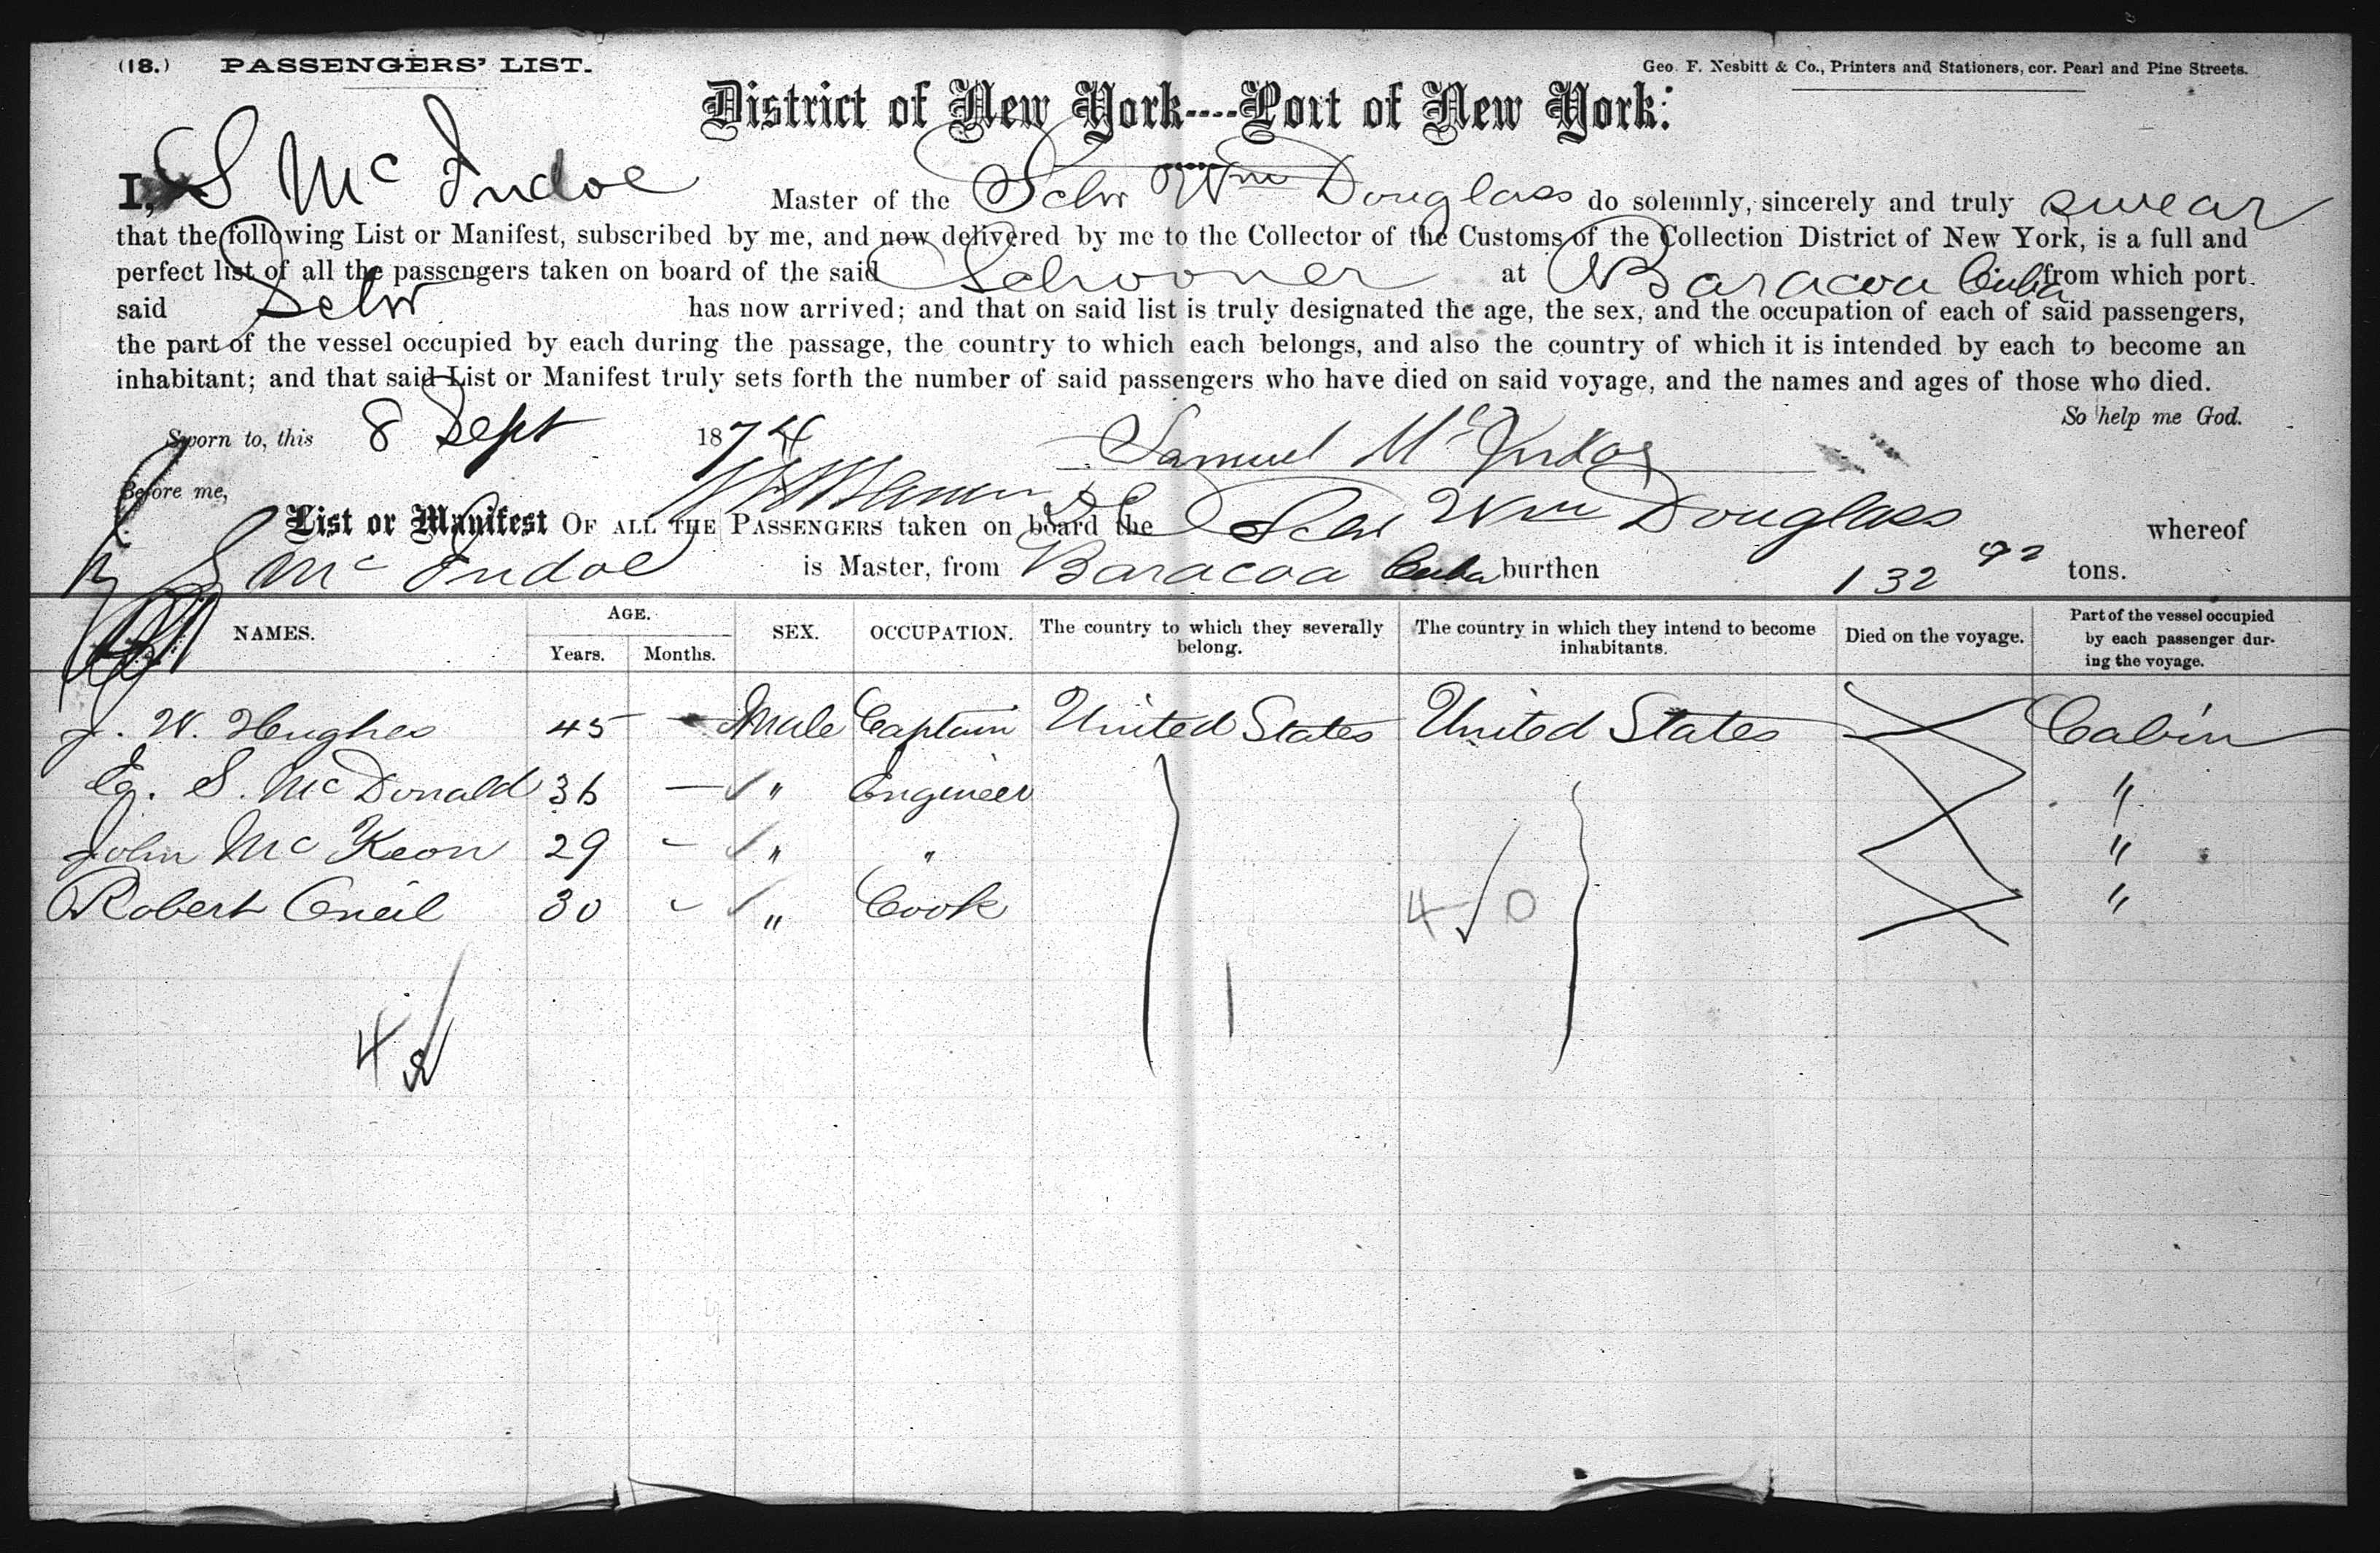 (18.) PASSENGERS' LIST.
Geo. F. Nesbitt & Co., Printers and Stationers, cor. Pearl and Pine Streets.
District of New York----Port of New York:
I, S Mc Indoe Master of the Schr Wm Douglass do solemnly, sincerely and truly swear
that the following List or Manifest, subscribed by me, and now delivered by me to the Collector of the Customs of the Collection District of New York, is a full and
perfect list of all the passengers taken on board of the said Schooner at Baracoa Cuba from which port
said Schr has now arrived; and that on said list is truly designated the age, the sex, and the occupation of each of said passengers,
the part of the vessel occupied by each during the passage, the country to which each belongs, and also the country of which it is intended by each to become an
inhabitant; and that said List or Manifest truly sets forth the number of said passengers who have died on said voyage, and the names and ages of those who died.
So help me God.
Sworn to, this 8 Sept 1874 Samuel Mc Indoe
Before me,
List or Manifest OF ALL THE PASSENGERS taken on board the Schr Wm Douglass whereof
S Mc Indoe is Master, from Baracoa Cuba burthen 132 92 tons.
NAMES. AGE. Years. Months. SEX. OCCUPATION. The country to which they severally belong. The country in which they intend to become inhabitants. Died on the voyage. Part of the vessel occupied by each passenger during the voyage.
J. W. Hughes 45 — Male Captain United States United States Cabin
S. McDonald 36 — " Engineer "
John McKeon 29 - " " "
Robert Oneil 30 - " Cook 4 0 "
4